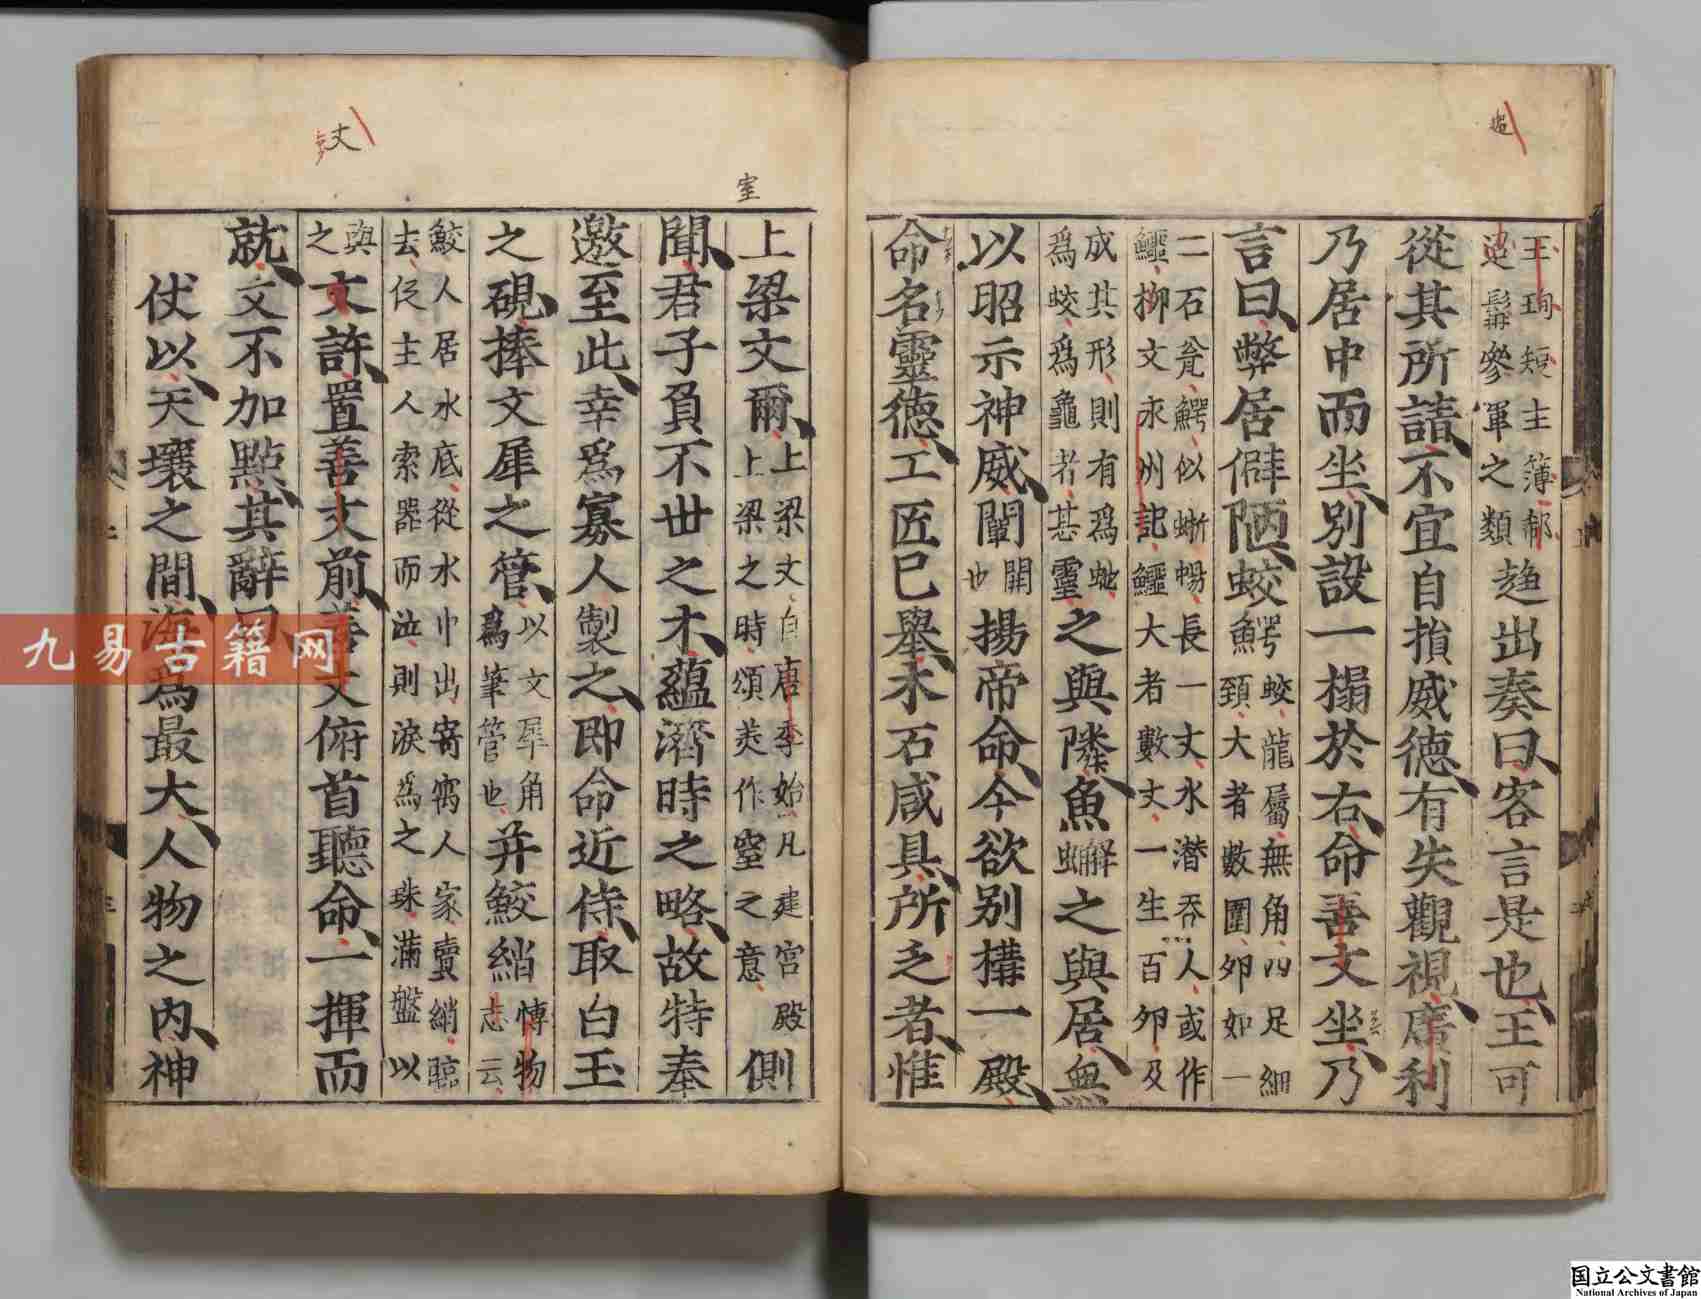 超
王珣短主簿郗
超髯參軍之類
趍出奏曰客言是也王可
從其所請不宜自損威德有失觀視廣利
乃居中而坐別設一榻於右命善文坐乃
言曰弊居僻陋蛟鰐
蛟龍屬無角四足細
頸大者數圍夘如一
二石瓮鰐似蜥蜴長一丈水潜吞人或作
鱷柳文永州記鱷大者數丈一生百夘及
成其形則有爲虵
爲蛟爲龜者甚靈
之與隣魚蠏之與居無
以昭示神威闡
開
也
揚帝命今欲別構一殿
命名靈德工匠已舉木石咸具所乏者惟
室
上梁文爾
上梁文自唐季始凡建宮殿
上梁之時頌美作室之意
側
聞君子負不世之才蘊濟時之略故特奉
邀至此幸爲寡人製之即命近侍取白玉
之硯捧文犀之管
以文犀角
爲筆管也
并鮫綃
博物
志云
鮫人居水底從水中出寄寓人家賣綃臨
去從主人索器而泣則淚爲之珠滿盤以
與
之
丈
文許置善文前善文俯首聽命一揮而
就文不加點其辭曰
伏以天壤之間海爲最大人物之内神
九易古籍网
国立公文書館
National Archives of Japan